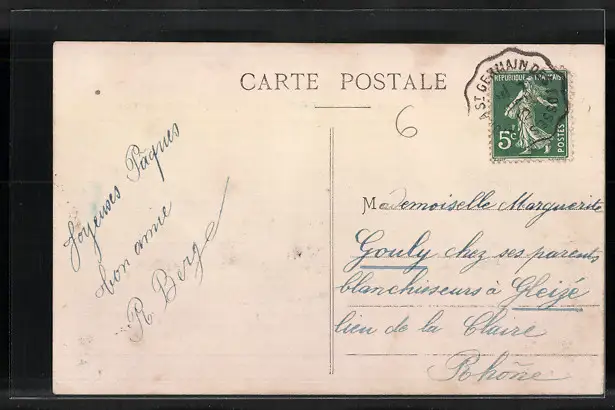 CARTE POSTALE
6
ST GERMAIN DE
REPUBLIQUE FRANÇAISE
5c
POSTES
Joyeuses Pâques
bon amie
R Berge
Mademoiselle Marguerite
Gouly chez ses parents
blanchisseurs à Gleizé
lieu de la Claire
Rhône